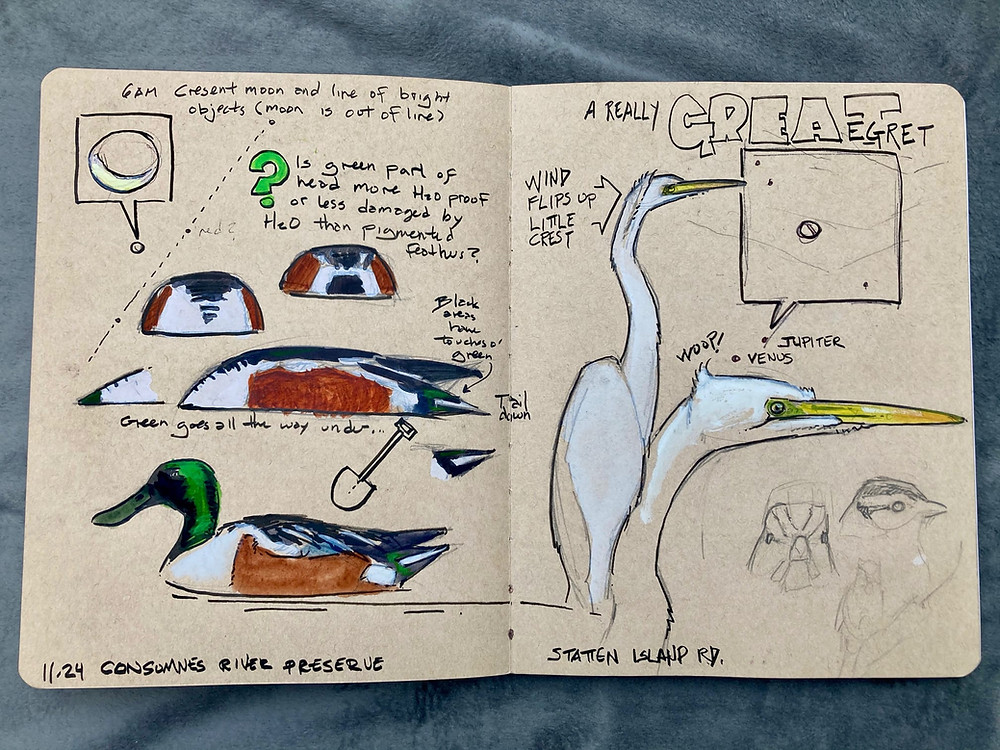 6AM Cresent moon and line of bright
objects (moon is out of line)
?
Is green part of
head more H2O proof
or less damaged by
H2O than pigmented
feathers?
red?
Black
areas
have
touches o'
green
Tail
down
Green goes all the way under...
11.24 CONSUMNES RIVER PRESERVE
A REALLY GREAT
EGRET
WIND
FLIPS UP
LITTLE
CREST
JUPITER
VENUS
WOOP!
STATTEN ISLAND RD.